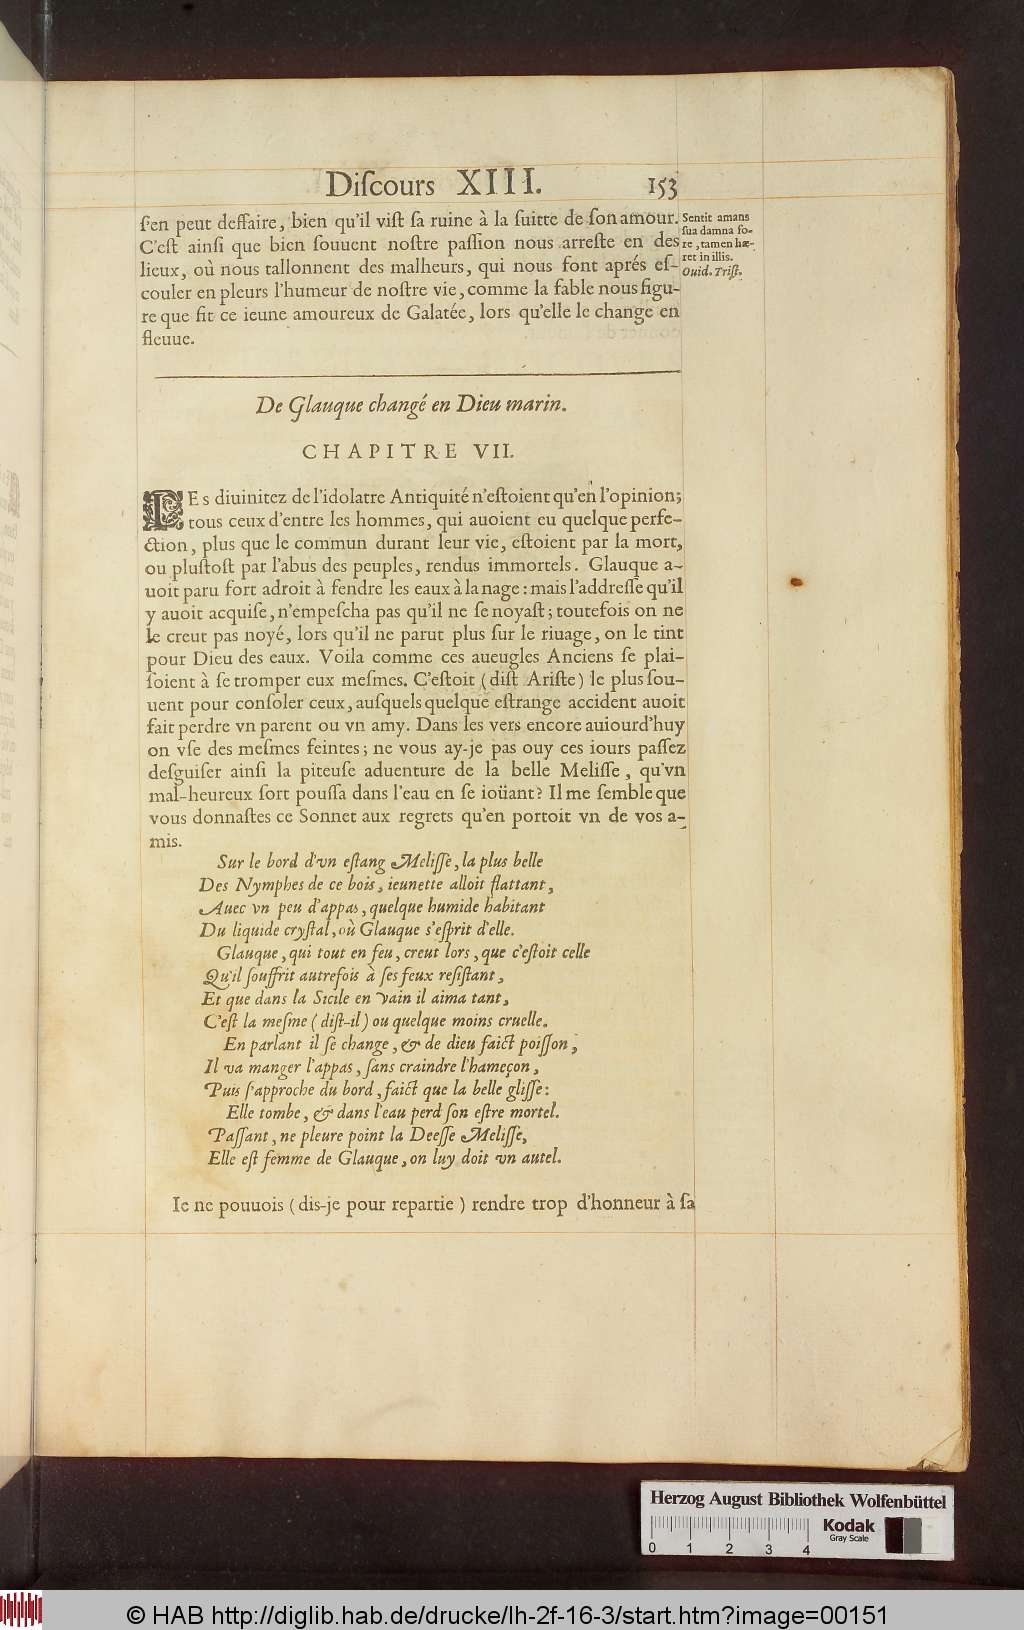 Diſcours XIII. 153
ſ'en peut deffaire, bien qu'il viſt ſa ruine à la ſuitte de ſon amour.
C'eſt ainſi que bien ſouuent noſtre paſſion nous arreſte en des
lieux, où nous tallonnent des malheurs, qui nous font aprés eſ-
couler en pleurs l'humeur de noſtre vie, comme la fable nous figu-
re que fit ce ieune amoureux de Galatée, lors qu'elle le change en
fleuue.
Sentit amans
ſua damna fo-
re, tamen hæ-
ret in illis.
Ouid. Triſt.
De Glauque changé en Dieu marin.
CHAPITRE VII.
LEs diuinitez de l'idolatre Antiquité n'eſtoient qu'en l'opinion;
tous ceux d'entre les hommes, qui auoient eu quelque perfe-
ction, plus que le commun durant leur vie, eſtoient par la mort,
ou pluſtoſt par l'abus des peuples, rendus immortels. Glauque a-
uoit paru fort adroit à fendre les eaux à la nage: mais l'addreſſe qu'il
y auoit acquiſe, n'empeſcha pas qu'il ne ſe noyaſt; toutefois on ne
le creut pas noyé, lors qu'il ne parut plus ſur le riuage, on le tint
pour Dieu des eaux. Voila comme ces aueugles Anciens ſe plai-
ſoient à ſe tromper eux meſmes. C'eſtoit (diſt Ariſte) le plus ſou-
uent pour conſoler ceux, auſquels quelque eſtrange accident auoit
fait perdre vn parent ou vn amy. Dans les vers encore auiourd'huy
on vſe des meſmes feintes; ne vous ay-je pas ouy ces iours paſſez
deſguiſer ainſi la piteuſe aduenture de la belle Meliſſe, qu'vn
mal-heureux ſort pouſſa dans l'eau en ſe ioüant? Il me ſemble que
vous donnaſtes ce Sonnet aux regrets qu'en portoit vn de vos a-
mis.
Sur le bord d'vn eſtang Meliſſe, la plus belle
Des Nymphes de ce bois, ieunette alloit flattant,
Auec vn peu d'appas, quelque humide habitant
Du liquide cryſtal, où Glauque s'eſprit d'elle.
Glauque, qui tout en feu, creut lors, que c'eſtoit celle
Qu'il ſouffrit autrefois à ſes feux reſiſtant,
Et que dans la Sicile en vain il aima tant,
C'eſt la meſme (diſt-il) ou quelque moins cruelle.
En parlant il ſe change, & de dieu faict poiſſon,
Il va manger l'appas, ſans craindre l'hameçon,
Puis ſ'approche du bord, faict que la belle gliſſe:
Elle tombe, & dans l'eau perd ſon eſtre mortel.
Paſſant, ne pleure point la Deeſſe Meliſſe,
Elle eſt femme de Glauque, on luy doit vn autel.
Ie ne pouuois (dis-je pour repartie) rendre trop d'honneur à ſa
Herzog August Bibliothek Wolfenbüttel
Kodak
Gray Scale
0 1 2 3 4
© HAB http://diglib.hab.de/drucke/lh-2f-16-3/start.htm?image=00151